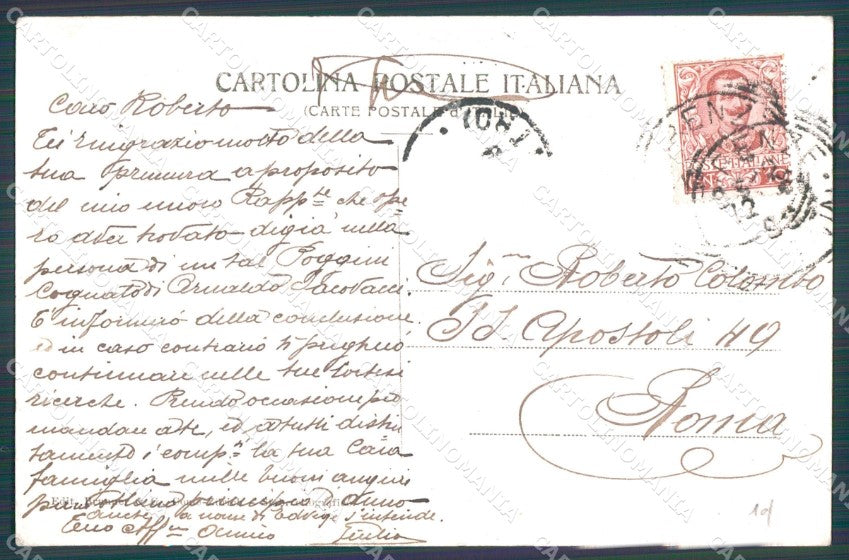 CARTOLINA POSTALE ITALIANA
(CARTE POSTALE d'ITALIE)
Caro Roberto
Ti ringrazio molto della
tua premura a proposito
del mio nuovo Rapp.te che spe
ro aver trovato digià nella
persona di un tal Poggini
Cognato di Arnaldo Jacovacci.
T'informerò della conclusione
ed in caso contrario ti pregherò
continuare nelle tue cortesi
ricerche. Prendo occasione per
mandare a te, ed a tutti distin
tamente i comp.ti la tua Cara
famiglia mille buoni auguri
principio d'anno
anche a nome di Edvige s'intende.
Tuo Aff.mo Amico Giulio
Sig.r Roberto Colombo
SS. Apostoli 49
Roma
POSTE ITALIANE
1d
CARTOLINOMANIA